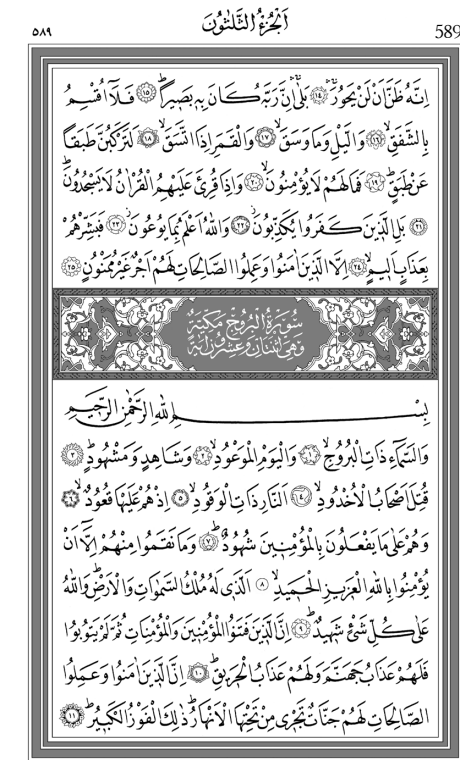 ٥٨٩ اَلْجُزْءُ الثَّلٰثُونَ 589
اِنَّهُ ظَنَّ اَنْ لَنْ يَحُورَۚۛ ﴿١٤﴾ بَلٰىۚۛ اِنَّ رَبَّهُ كَانَ بِهِ بَصٖيرًاۜ ﴿١٥﴾ فَلَٓا اُقْسِمُ
بِالشَّفَقِۙ ﴿١٦﴾ وَالَّيْلِ وَمَا وَسَقَۙ ﴿١٧﴾ وَالْقَمَرِ اِذَا اتَّسَقَۙ ﴿١٨﴾ لَتَرْكَبُنَّ طَبَقًا
عَنْ طَبَقٍۜ ﴿١٩﴾ فَمَا لَهُمْ لَا يُؤْمِنُونَۙ ﴿٢٠﴾ وَاِذَا قُرِئَ عَلَيْهِمُ الْقُرْاٰنُ لَا يَسْجُدُونَۜ
﴿٢١﴾ بَلِ الَّذٖينَ كَفَرُوا يُكَذِّبُونَۘ ﴿٢٢﴾ وَاللّٰهُ اَعْلَمُ بِمَا يُوعُونَۘ ﴿٢٣﴾ فَبَشِّرْهُمْ
بِعَذَابٍ اَلٖيمٍۙ ﴿٢٤﴾ اِلَّا الَّذٖينَ اٰمَنُوا وَعَمِلُوا الصَّالِحَاتِ لَهُمْ اَجْرٌ غَيْرُ مَمْنُونٍ ﴿٢٥﴾
سُورَةُ الْبُرُوجِ مَكِّيَّةٌ
وَهِيَ اثْنَتَانِ وَعِشْرُونَ اٰيَةً
بِسْمِ اللّٰهِ الرَّحْمٰنِ الرَّحٖيمِ
وَالسَّمَٓاءِ ذَاتِ الْبُرُوجِۙ ﴿١﴾ وَالْيَوْمِ الْمَوْعُودِۙ ﴿٢﴾ وَشَاهِدٍ وَمَشْهُودٍۜ ﴿٣﴾
قُتِلَ اَصْحَابُ الْاُخْدُودِۙ ﴿٤﴾ اَلنَّارِ ذَاتِ الْوَقُودِۙ ﴿٥﴾ اِذْ هُمْ عَلَيْهَا قُعُودٌۙ ﴿٦﴾
وَهُمْ عَلٰى مَا يَفْعَلُونَ بِالْمُؤْمِنٖينَ شُهُودٌۜ ﴿٧﴾ وَمَا نَقَمُوا مِنْهُمْ اِلَّٓا اَنْ
يُؤْمِنُوا بِاللّٰهِ الْعَزٖيزِ الْحَمٖيدِۙ ﴿٨﴾ اَلَّذٖي لَهُ مُلْكُ السَّمٰوَاتِ وَالْاَرْضِۜ وَاللّٰهُ
عَلٰى كُلِّ شَيْءٍ شَهٖيدٌۜ ﴿٩﴾ اِنَّ الَّذٖينَ فَتَنُوا الْمُؤْمِنٖينَ وَالْمُؤْمِنَاتِ ثُمَّ لَمْ يَتُوبُوا
فَلَهُمْ عَذَابُ جَهَنَّمَ وَلَهُمْ عَذَابُ الْحَرٖيقِۜ ﴿١٠﴾ اِنَّ الَّذٖينَ اٰمَنُوا وَعَمِلُوا
الصَّالِحَاتِ لَهُمْ جَنَّاتٌ تَجْرٖي مِنْ تَحْتِهَا الْاَنْهَارُۜ ذٰلِكَ الْفَوْزُ الْكَبٖيرُۜ ﴿١١﴾